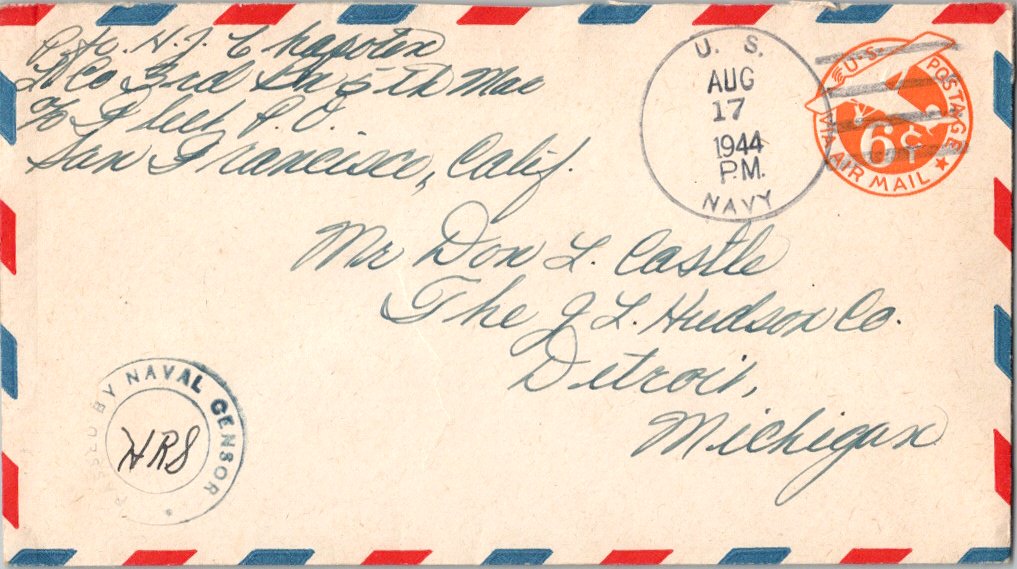 Pfc. H. J. Chapoten
Co 3rd Bn 5th Mar
% Fleet P. O.
San Francisco, Calif.
U. S.
AUG
17
1944
P.M.
NAVY
U.S. POSTAGE
6¢
VIA AIR MAIL
Mr Don L. Castle
The J L. Hudson Co.
Detroit,
Michigan
PASSED BY NAVAL CENSOR
HRS